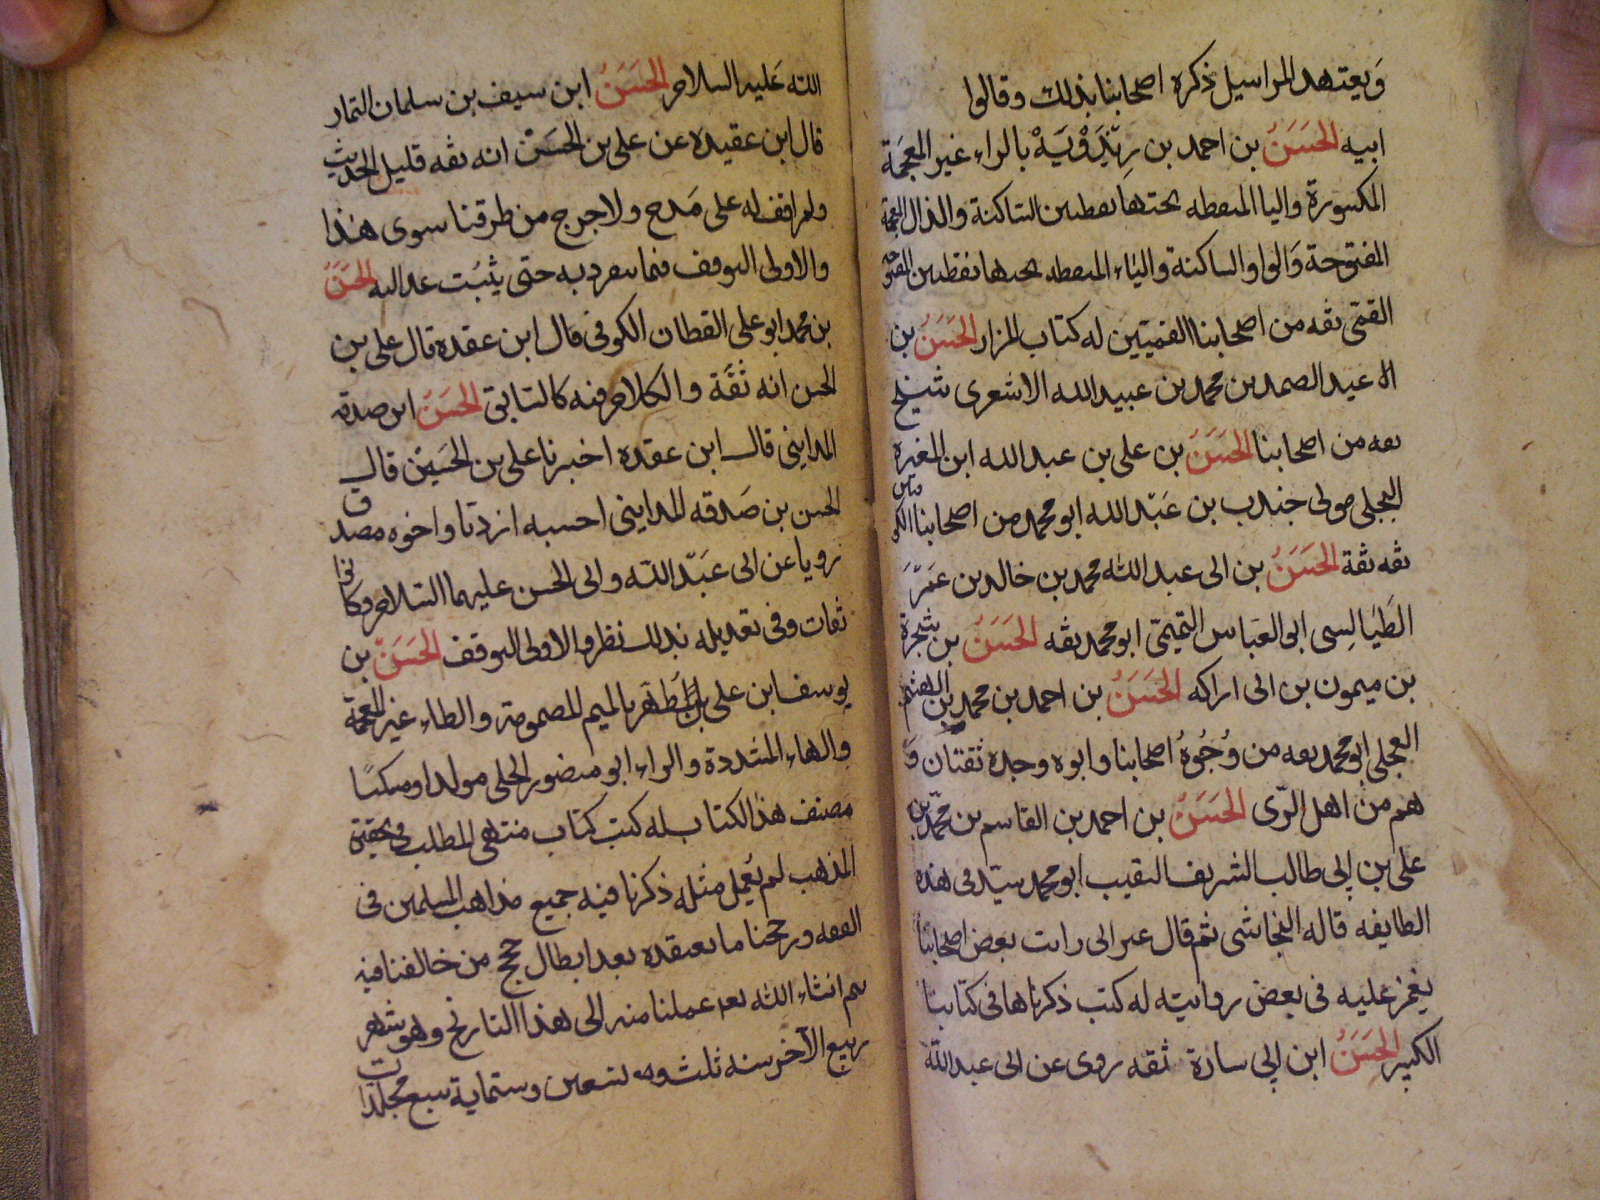 ويعتمد المراسيل ذكره اصحابنا بذلك وقالوا
ابيه الحَسَنُ بن احمد بن رِيْذَوَيَهْ بالراء غير المعجمة
المكسورة واليا المنقطه تحتها نقطتين الساكنة والذال المعجمة
المفتوحة والواو الساكنة والياء المنقطه تحتها نقطتين المفتوحه
القمّى ثقه من اصحابنا القميّين له كتاب المزار الحَسَنُ بن
عبد الصمد بن محمد بن عبيد الله الاشعرى شيخ
ثقه من اصحابنا الحَسَنُ بن على بن عبد الله ابن المغيره
البجلى مولى جندب بن عَبْد الله ابو محمد من اصحابنا الكو
فيين
ثقه ثقة الحَسَنُ بن ابى عبد الله محمد بن خالد بن عمَرَ
الطَيالِسى ابو العبَاس التميمىّ ابو محمد ثقه الحَسَنُ بن شجرة
بن ميمون بن ابى اراكه الحَسَنُ بن احمد بن محمد بن الهيثم
العجلى ابو محمد ثقه من وُجُوهُ اصحابنا وابوه وجده ثقتان وَ
هم من اهل الرّى الحَسَنُ بن احمد بن القاسم بن محمّد بن
على بن ابى طالب الشريف النقيب ابو محمد سيّد فى هذه
الطايفه قاله النجاشى ثم قال غير انى رايت بعض اصحابنا
يغمز عليه فى بعض روايته له كتب ذكرناها فى كتابنا
الكبير الحَسَنُ ابن ابى سارة ثقه روى عن ابى عبد الله
الله عَليه السلام الحَسَنُ ابن سيف بن سلمان التمار
قال ابن عقيده عن على بن الحسَن انه ثقه قليل الحديث
ولم اقف له على مَدح ولا جرح من طرقنا سوى هذا
والاولى التوقف فيما ينفرد به حتى يثبُت عدالته الحَسَنُ
بن محمد ابو على القطان الكوفى قال ابن عقده قال على بن
الحسن انه ثقَة والكلام فيه كالسابق الحَسَنُ ابن صدقه
المداينى قال ابن عقده اخبرنا على بن الحَسَين قال
الحسن بن صَدقه المداينى احسبه ازديّا واخوه مصدق
رويا عن ابى عَبْد الله وابى الحسن عليهما السلام وكانوا
ثقات وفى تعديله بذلك نظر والاولى التوقف الحَسَنُ بن
يوسف ابن على بن المُطَهَّر بالميم المضمومة والطاء غير المعجمة
والهاء المشددة والراء ابو منصور الحلى مولدا ومسكنًا
مصنف هذا الكتاب له كتب كتاب منتهى المطلب فى تحقيق
المذهب لم يُعمل مثله ذكرنا فيه جميع مذاهب المسلمين فى
الفقه ورجحنا ما نعتقده بعد ابطال حجج من خالفنا فيه
يتم انشاء الله تعالى عملنا منه الى هذا التاريخ وهو شهر
ربيع الآخر سنه ثلث وتسعين وستماية سبع مجلدات